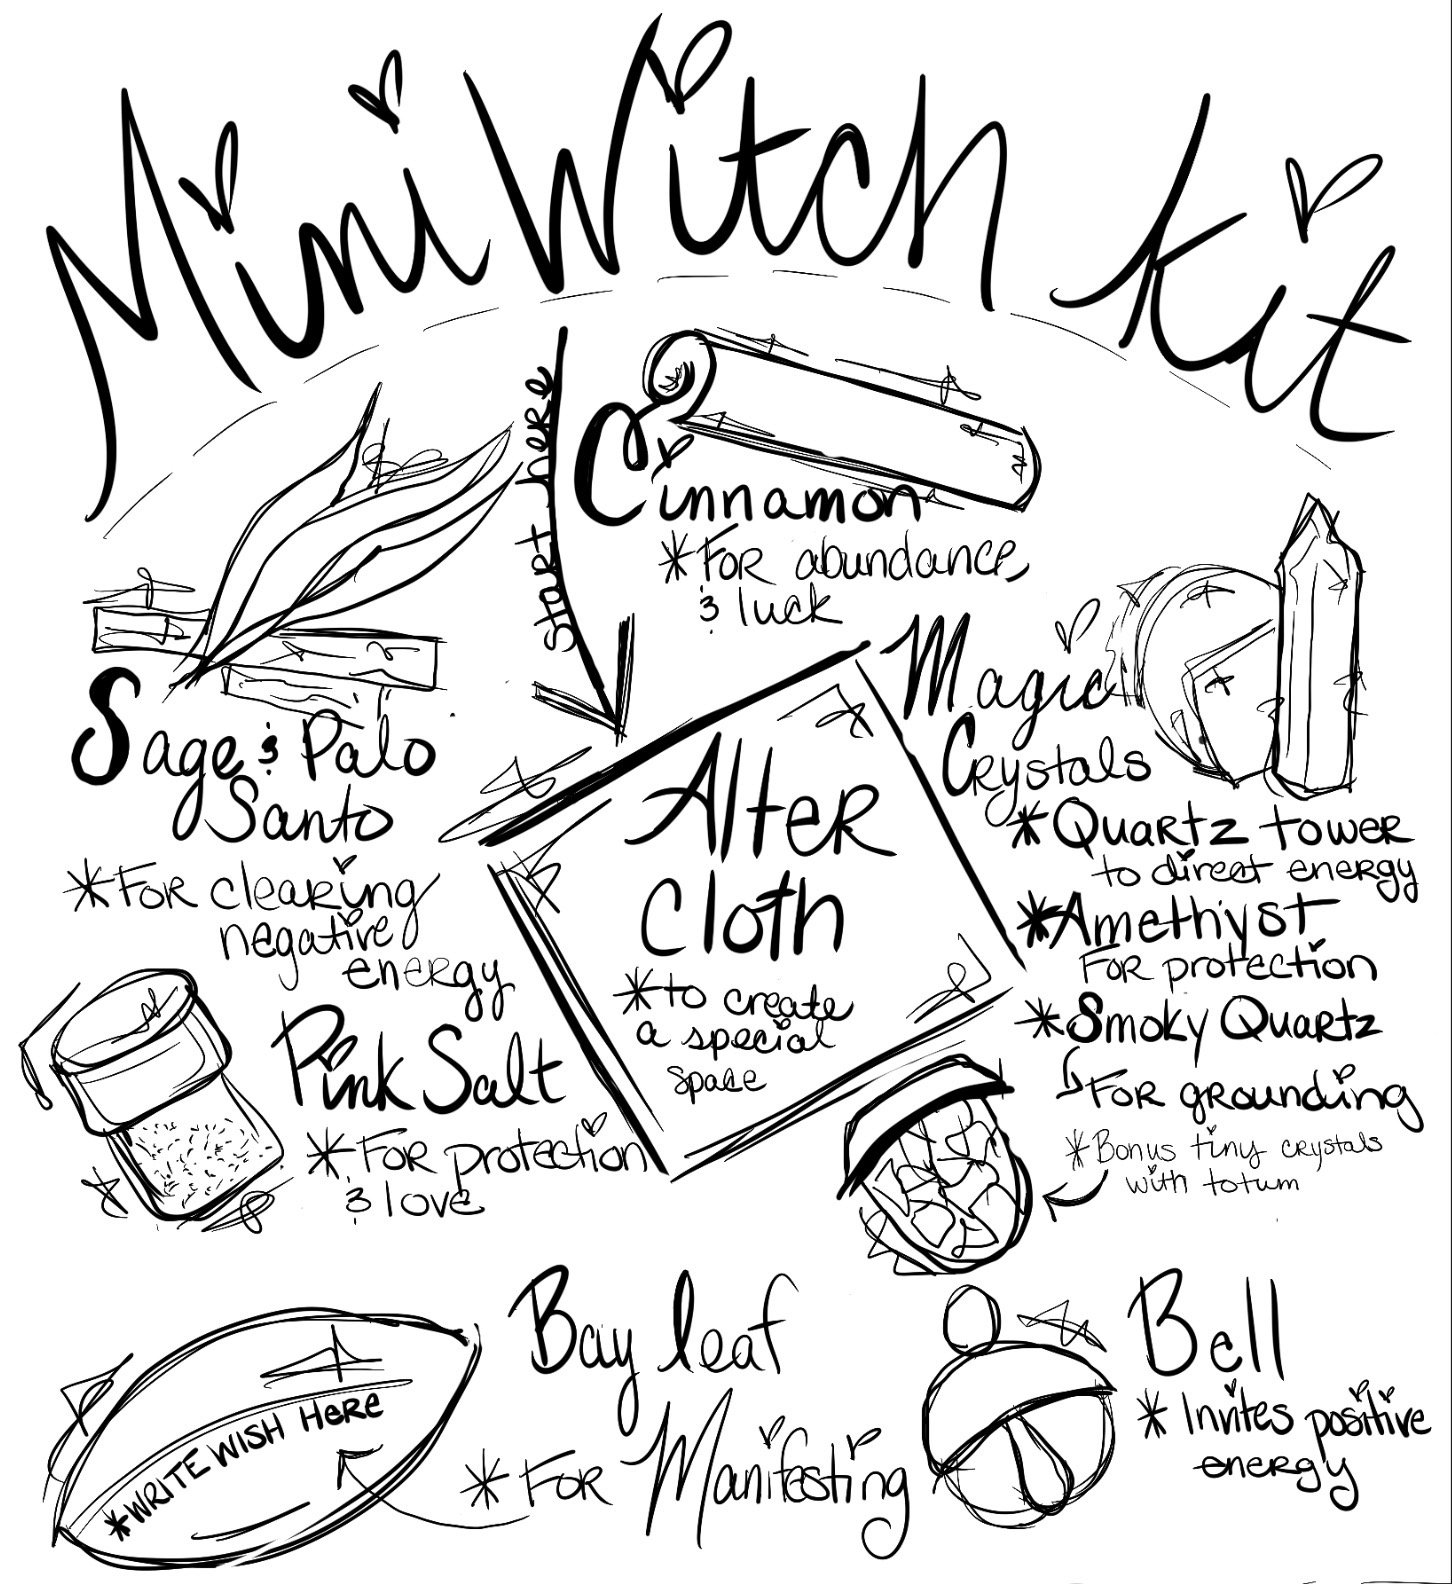 Mini Witch Kit
Start here
Cinnamon
*For abundance,
& luck
Sage & Palo
Santo
*For clearing
negative
energy
Alter
Cloth
*to create
a special
space
Magic
Crystals
*Quartz tower
to direct energy
*Amethyst
For protection
*Smoky Quartz
For grounding
*Bonus tiny crystals
with totum
Pink Salt
*For protection
& love
Bay leaf
*For Manifesting
*WRITE WISH HERE
Bell
*Invites positive
energy